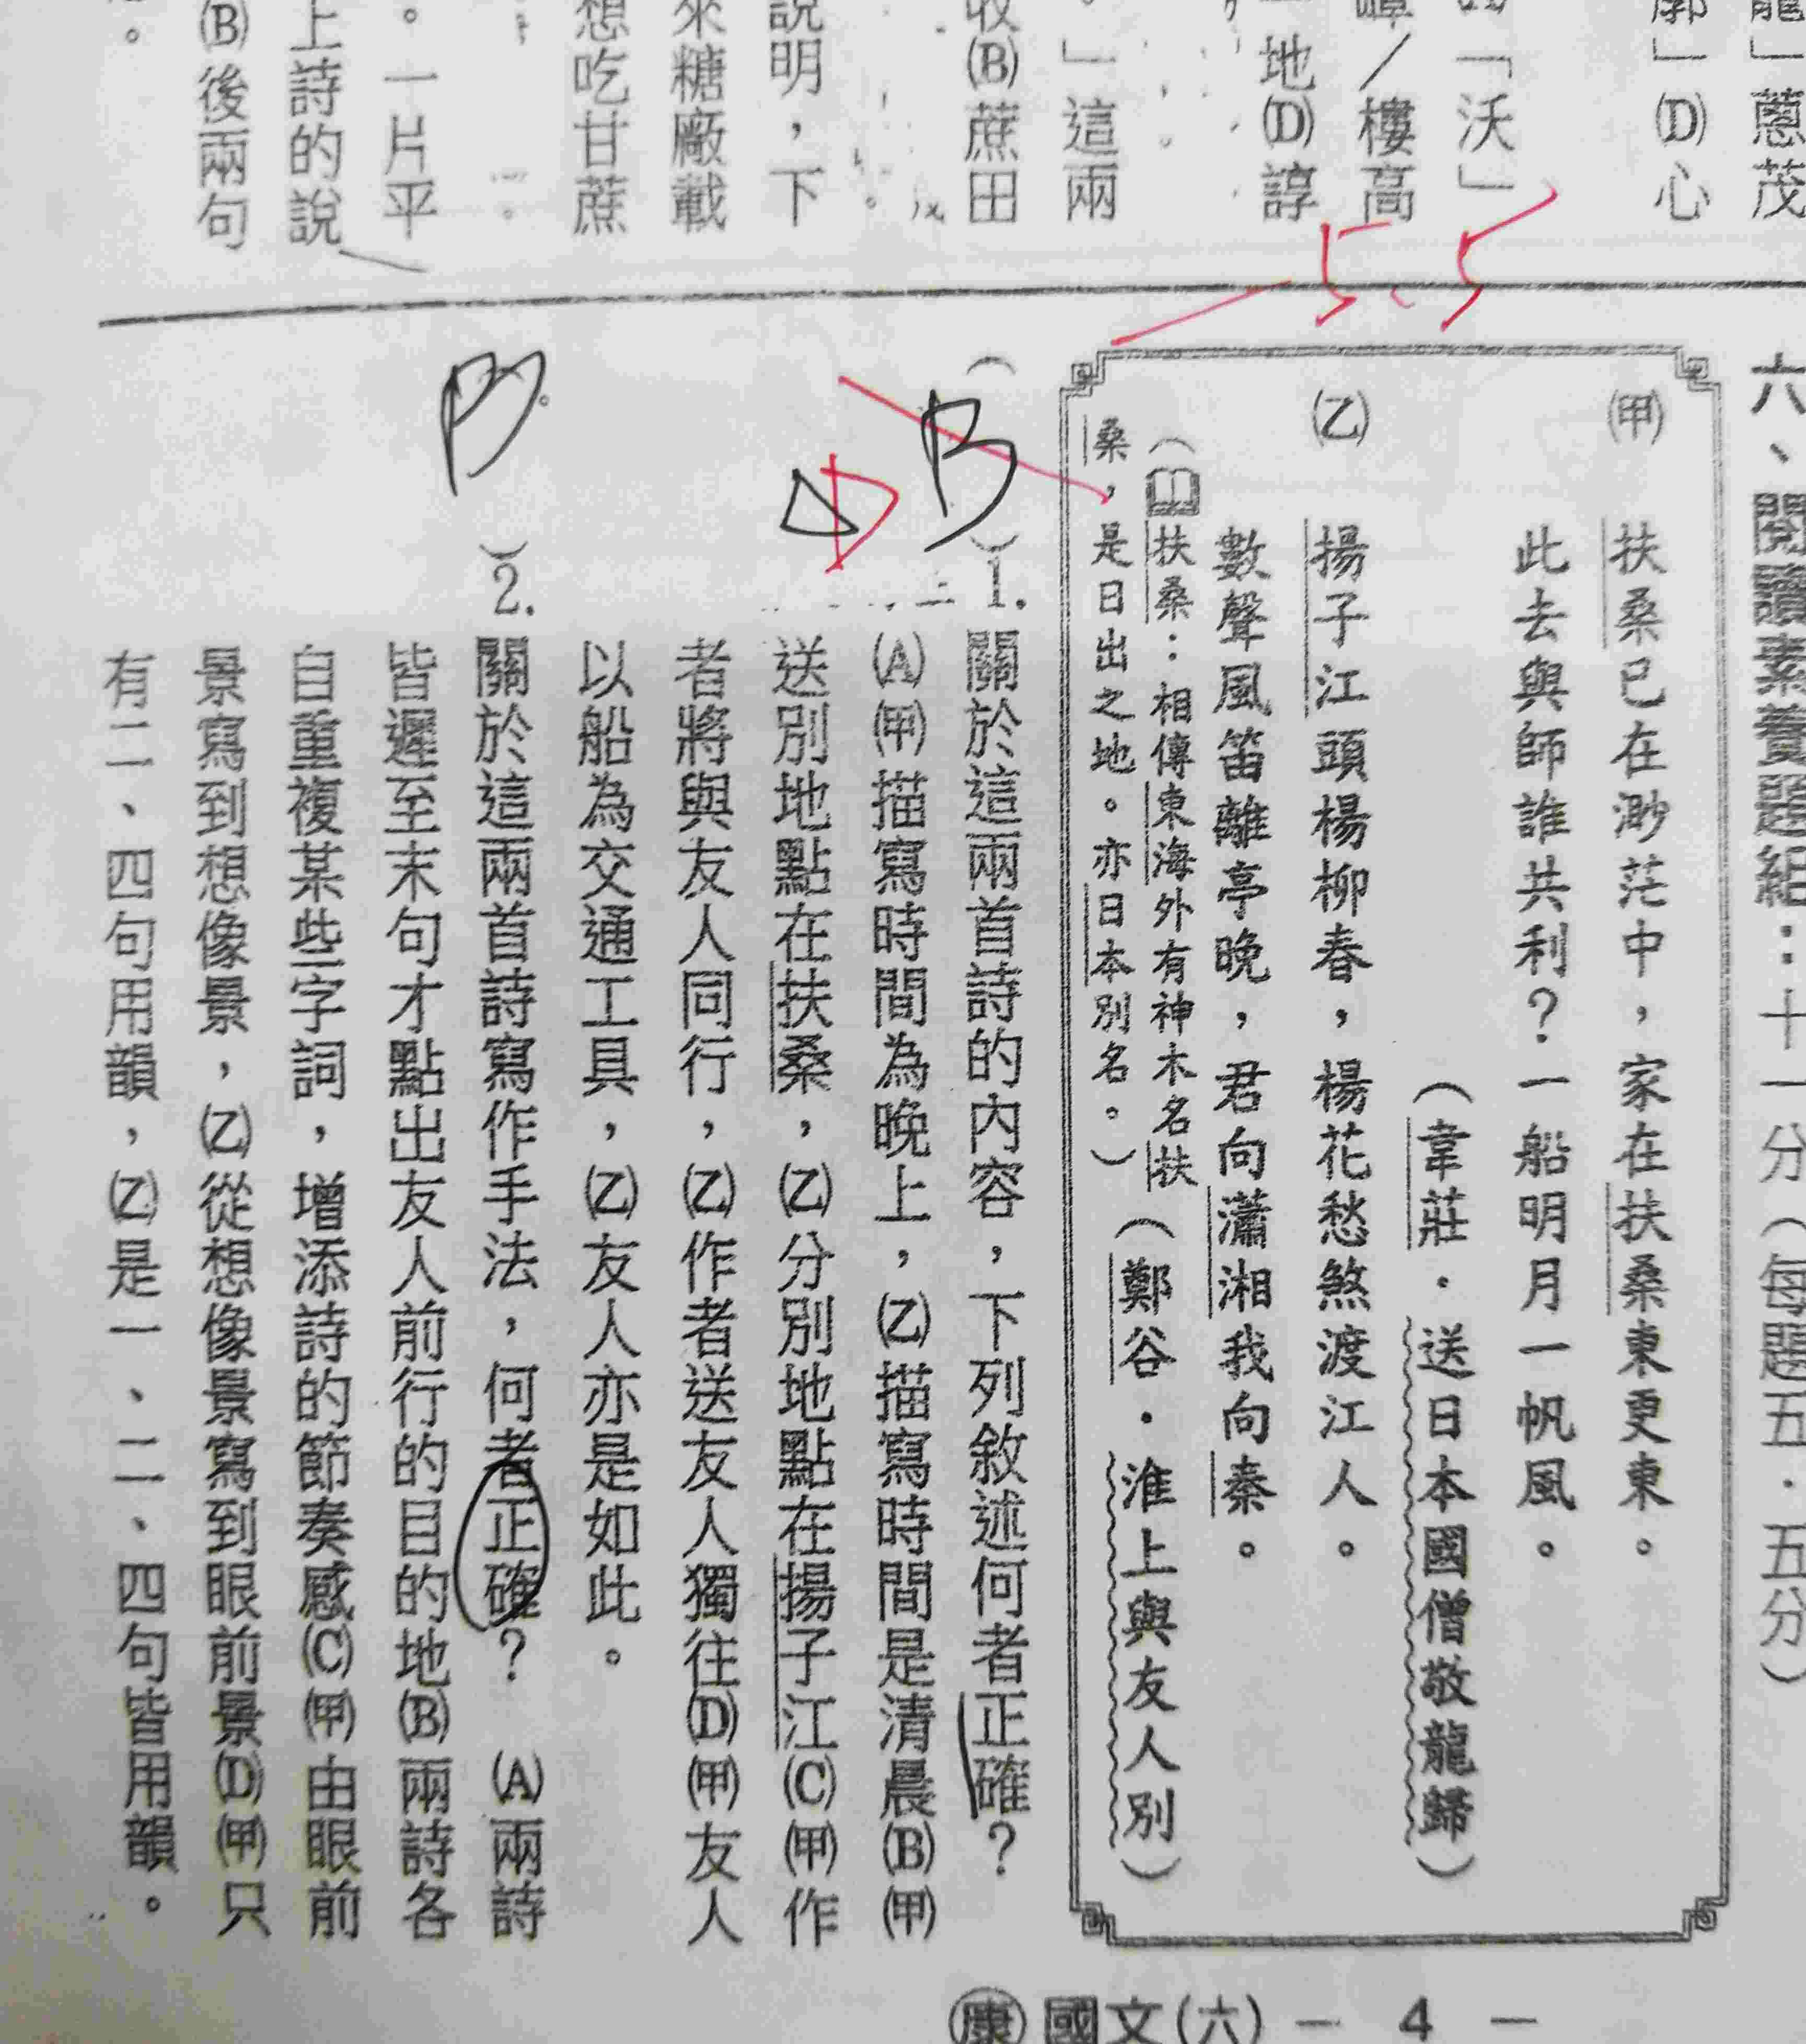 龍」蔥茂
廓」(D)心
「沃」
嶂／樓高
地(D)諄
。」這兩
收(B)蔗田
說明，下
來糖廠載
想吃甘蔗
。一片平
上詩的說
(B)後兩句
六、閱讀素養題組：十一分（每題五．五分）
(甲)
扶桑已在渺茫中，家在扶桑東更東。
此去與師誰共利？一船明月一帆風。
（韋莊．送日本國僧敬龍歸）
(乙)
揚子江頭楊柳春，楊花愁煞渡江人。
數聲風笛離亭晚，君向瀟湘我向秦。
（扶桑：相傳東海外有神木名扶
桑，是日出之地。亦日本別名。）
（鄭谷．淮上與友人別）
5.5
（B）1.關於這兩首詩的內容，下列敘述何者正確？
D
(A)(甲)描寫時間為晚上，(乙)描寫時間是清晨(B)(甲)
送別地點在扶桑，(乙)分別地點在揚子江(C)(甲)作
者將與友人同行，(乙)作者送友人獨往(D)(甲)友人
以船為交通工具，(乙)友人亦是如此。
B）2.關於這兩首詩寫作手法，何者正確？　(A)兩詩
皆遲至末句才點出友人前行的目的地(B)兩詩各
自重複某些字詞，增添詩的節奏感(C)(甲)由眼前
景寫到想像景，(乙)從想像景寫到眼前景(D)(甲)只
有二、四句用韻，(乙)是一、二、四句皆用韻。
康 國文(六)－ 4 －